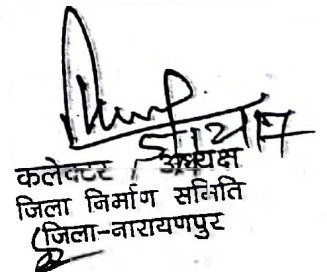 कलेक्टर / अध्यक्ष
जिला निर्माण समिति
जिला-नारायणपुर